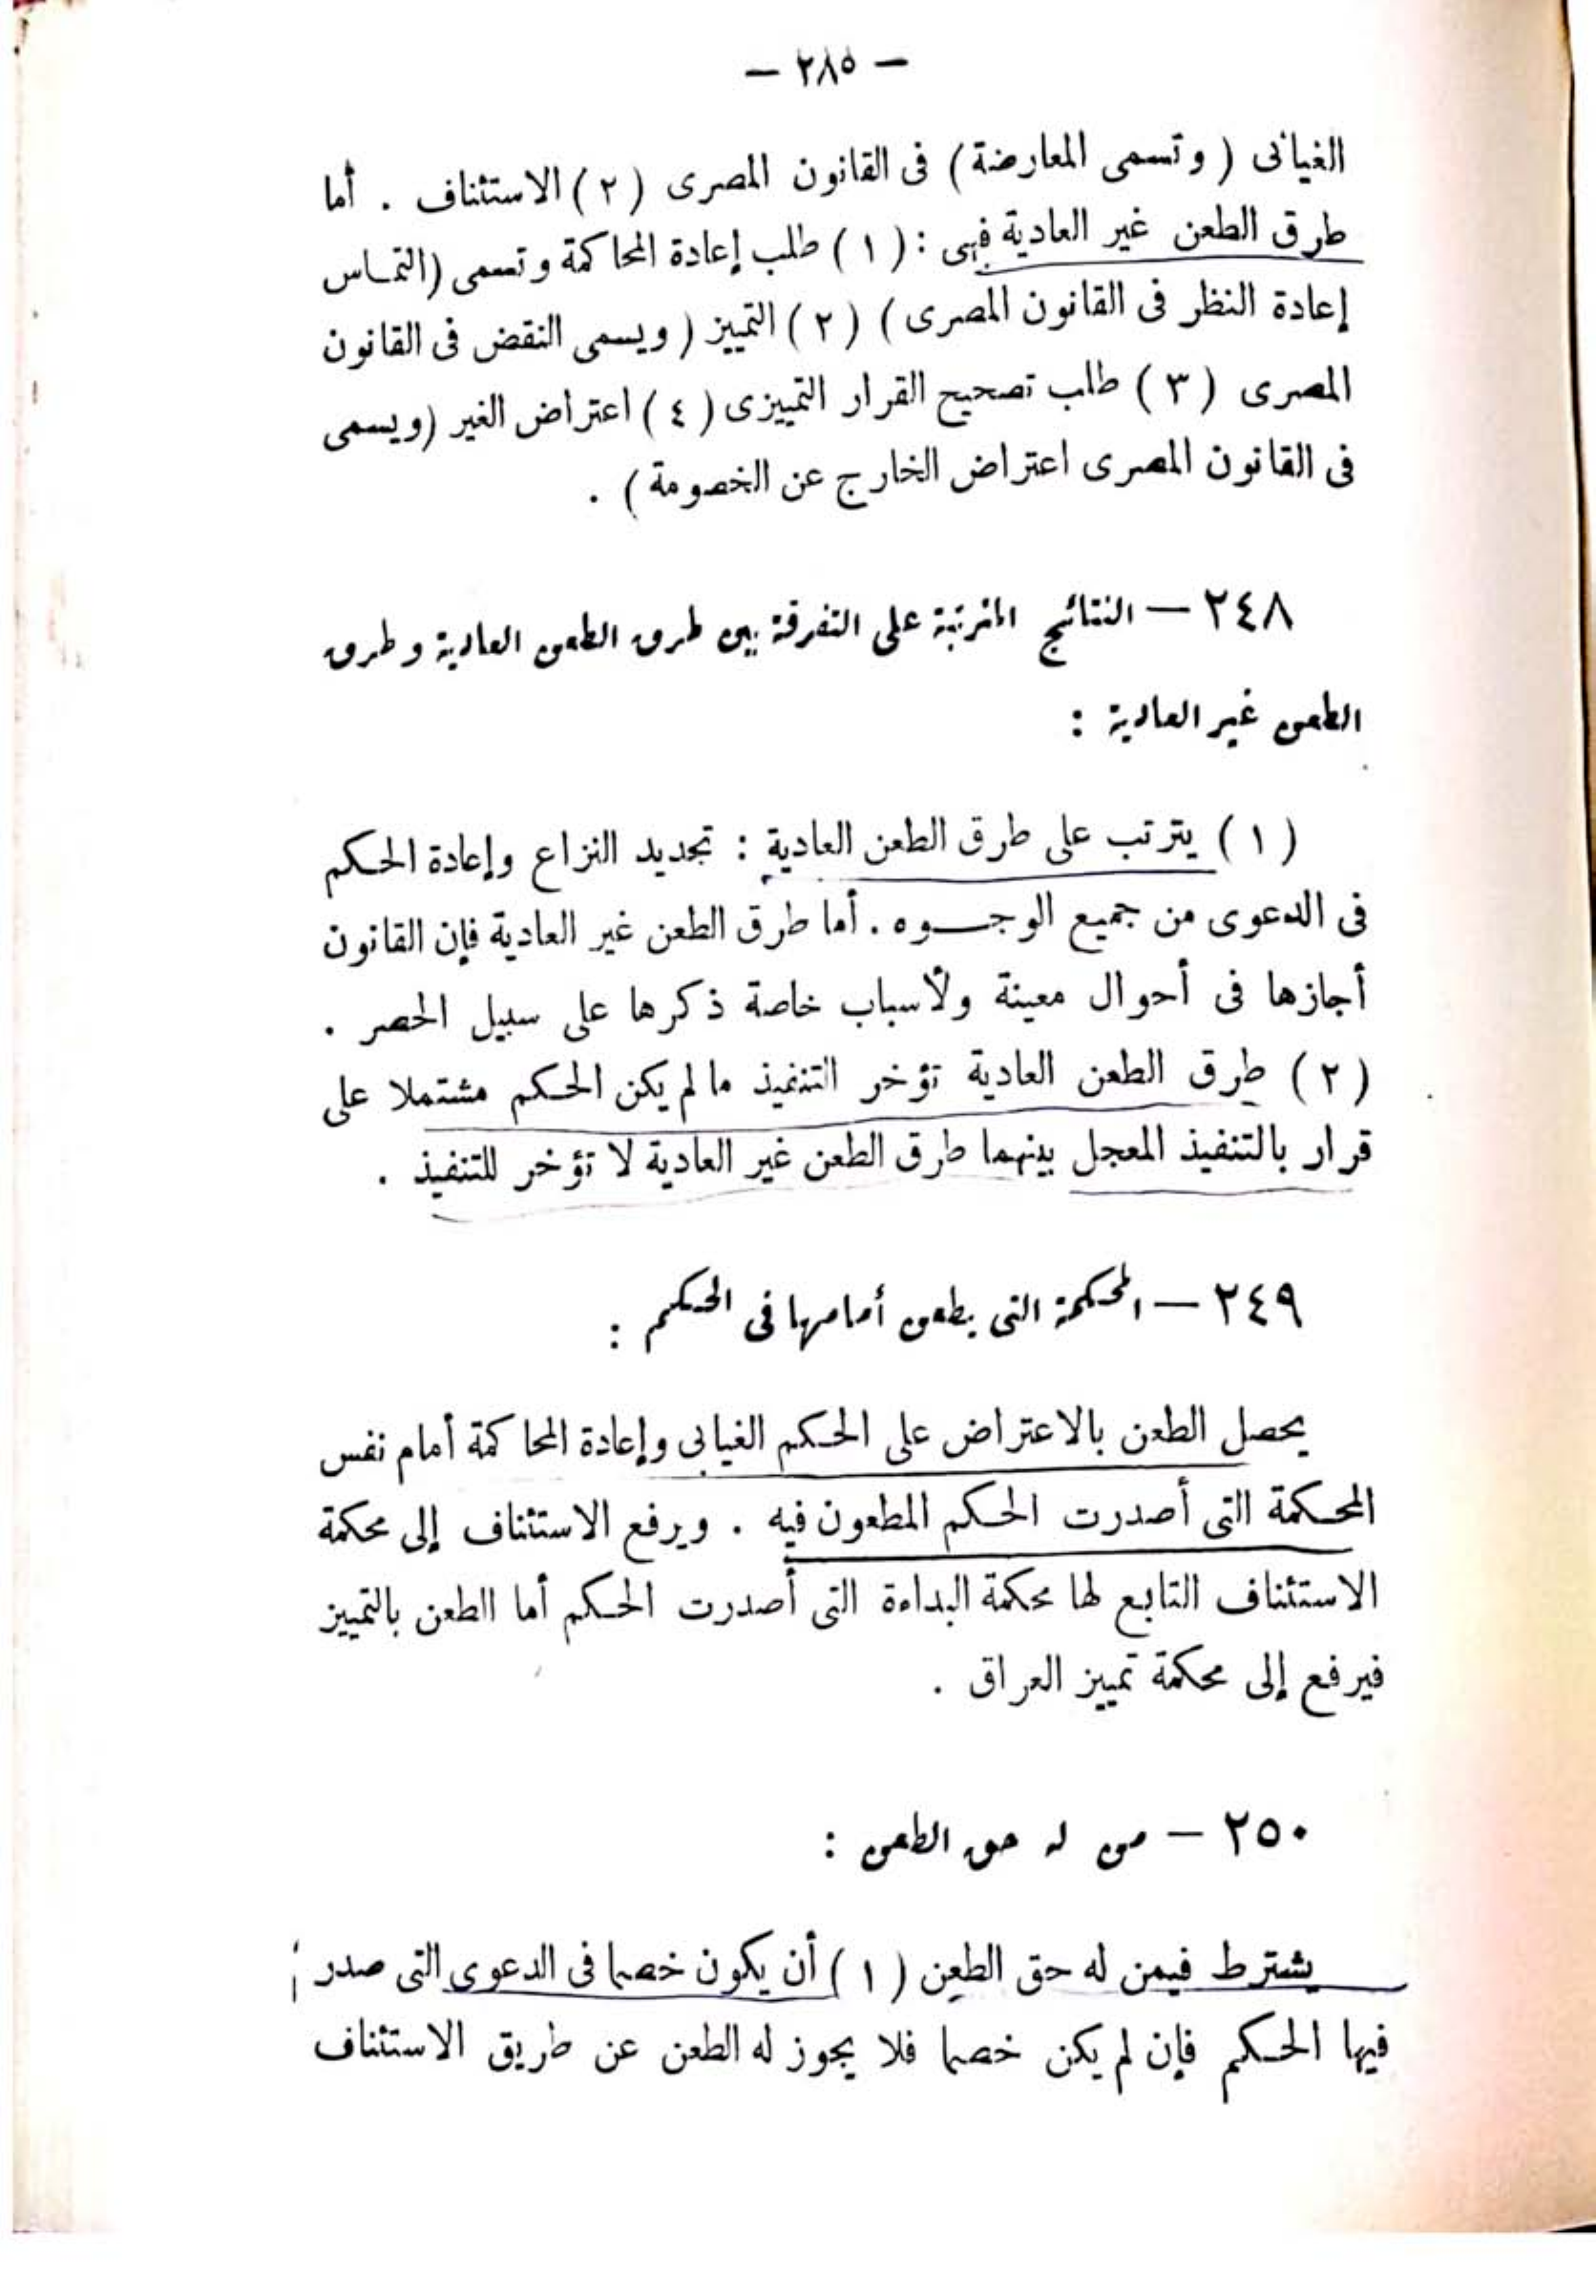 — ٢٨٥ —
الغيابى ( وتسمى المعارضة ) فى القانون المصرى ( ٢ ) الاستئناف . أما
طرق الطعن غير العادية فهى : ( ١ ) طلب إعادة المحاكمة وتسمى (التماس
إعادة النظر فى القانون المصرى ) ( ٢ ) التمييز ( ويسمى النقض فى القانون
المصرى ( ٣ ) طلب تصحيح القرار التمييزى ( ٤ ) اعتراض الغير (ويسمى
فى القانون المصرى اعتراض الخارج عن الخصومة ) .
٢٤٨ — النتائج المترتبة على التفرقة بين طرق الطعن العادية وطرق
الطعن غير العادية :
( ١ ) يترتب على طرق الطعن العادية : تجديد النزاع وإعادة الحكم
فى الدعوى من جميع الوجــوه . أما طرق الطعن غير العادية فإن القانون
أجازها فى أحوال معينة ولأسباب خاصة ذكرها على سبيل الحصر .
( ٢ ) طرق الطعن العادية تؤخر التنفيذ ما لم يكن الحكم مشتملا على
قرار بالتنفيذ المعجل بينهما طرق الطعن غير العادية لا تؤخر للتنفيذ .
٢٤٩ — المحكمة التى يطعن أمامها فى الحكم :
يحصل الطعن بالاعتراض على الحكم الغيابى وإعادة المحاكمة أمام نفس
المحكمة التى أصدرت الحكم المطعون فيه . ويرفع الاستئناف إلى محكمة
الاستئناف التابع لها محكمة البداءة التى أصدرت الحكم أما الطعن بالتمييز
فيرفع إلى محكمة تمييز العراق .
٢٥٠ — من له حق الطعن :
يشترط فيمن له حق الطعن ( ١ ) أن يكون خصما فى الدعوى التى صدر
فيها الحكم فإن لم يكن خصما فلا يجوز له الطعن عن طريق الاستئناف